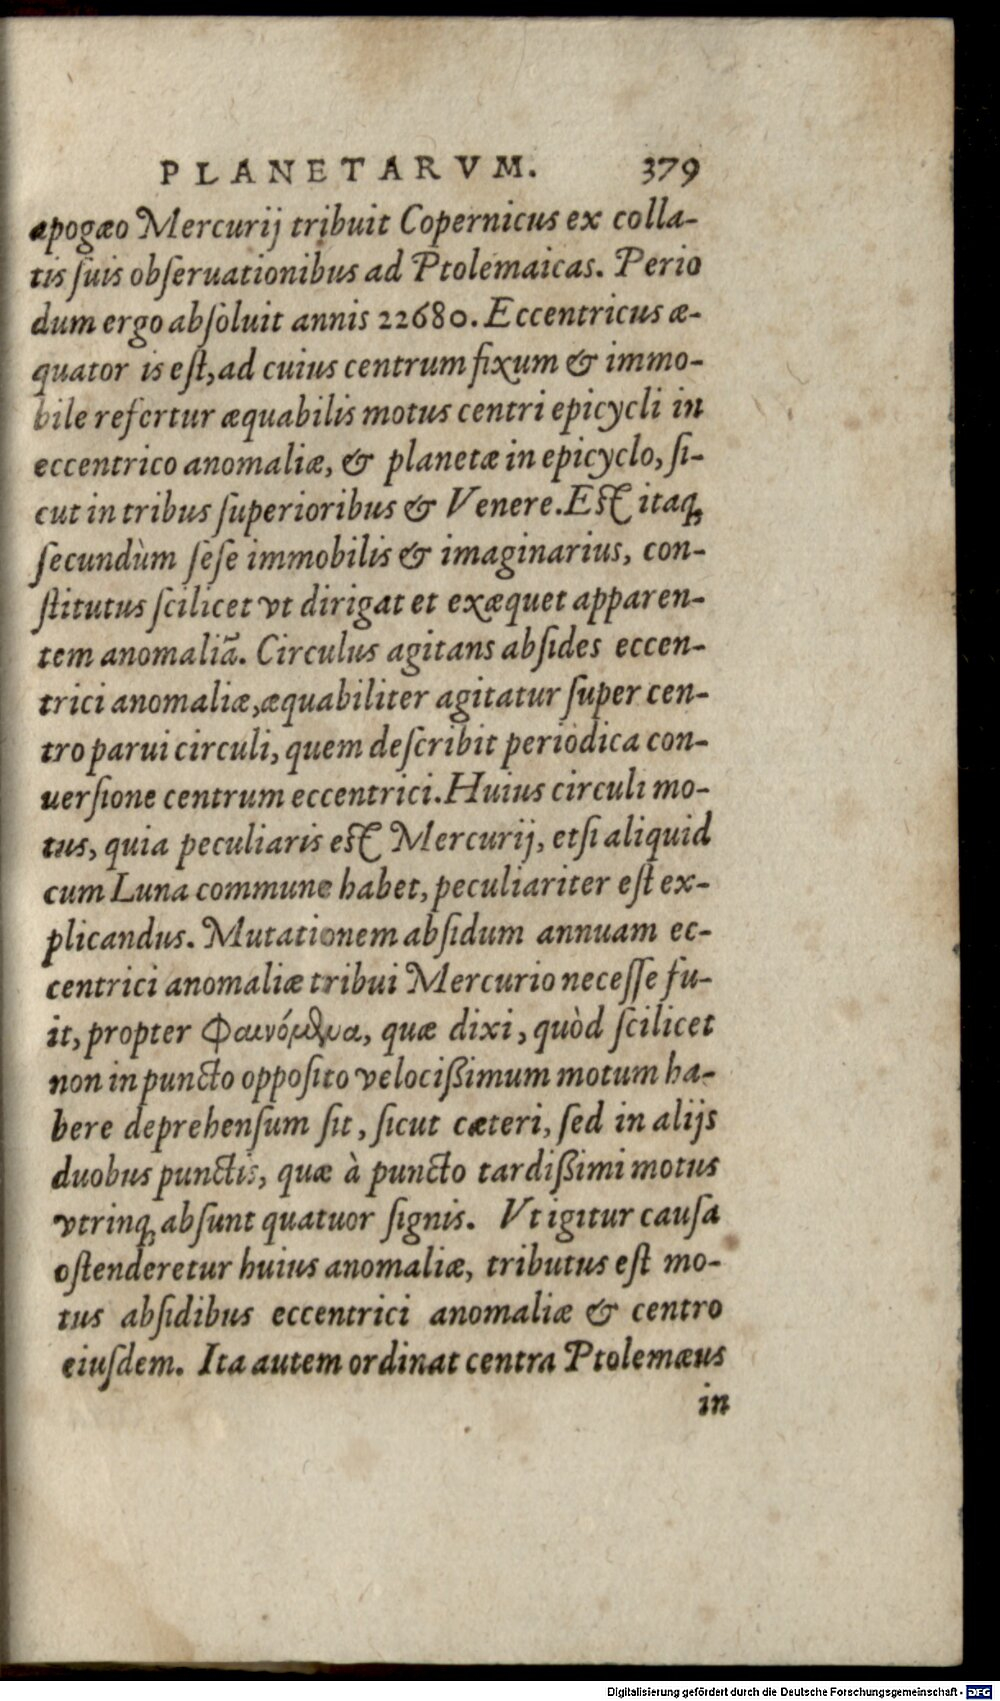 PLANETARVM. 379
apogæo Mercurij tribuit Copernicus ex colla-
tis ſuis obſeruationibus ad Ptolemaicas. Perio
dum ergo abſoluit annis 22680. Eccentricus æ-
quator is eſt, ad cuius centrum fixum & immo-
bile refertur æquabilis motus centri epicycli in
eccentrico anomaliæ, & planetæ in epicyclo, ſi-
cut in tribus ſuperioribus & Venere. Eſt itaq;
ſecundùm ſeſe immobilis & imaginarius, con-
ſtitutus ſcilicet vt dirigat et exæquet apparen-
tem anomaliã. Circulus agitans abſides eccen-
trici anomaliæ, æquabiliter agitatur ſuper cen-
tro parui circuli, quem deſcribit periodica con-
uerſione centrum eccentrici. Huius circuli mo-
tus, quia peculiaris eſt Mercurij, etſi aliquid
cum Luna commune habet, peculiariter eſt ex-
plicandus. Mutationem abſidum annuam ec-
centrici anomaliæ tribui Mercurio neceſſe fu-
it, propter Φαινόμενα, quæ dixi, quòd ſcilicet
non in puncto oppoſito velocißimum motum ha-
bere deprehenſum ſit, ſicut cæteri, ſed in alijs
duobus punctis, quæ à puncto tardißimi motus
vtrinq; abſunt quatuor ſignis. Vt igitur cauſa
oſtenderetur huius anomaliæ, tributus eſt mo-
tus abſidibus eccentrici anomaliæ & centro
eiuſdem. Ita autem ordinat centra Ptolemæus
in
Digitalisierung gefördert durch die Deutsche Forschungsgemeinschaft - DFG